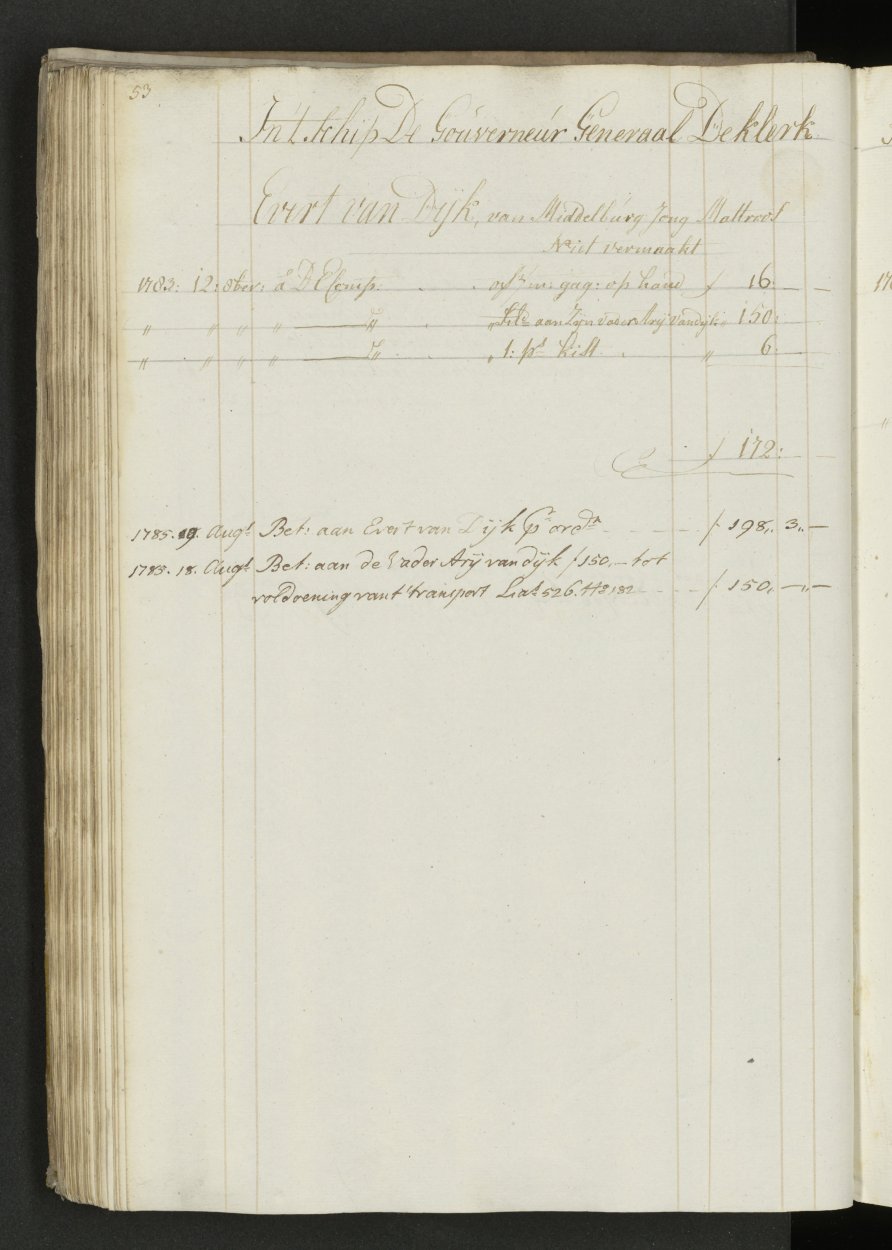 53
In't schip De Gouverneur Generaal De Klerk
Evert van Dijk, van Middelburg Jong Mattroos
Niet vermaakt
1783: 12: 8ber: a D'E Comp: . . 2/m: gag: op hand ƒ 16: —
" " " " — " . " Sch:d aan Zijn Vader Arij van dijk " 150: —
" " " " — " . . " 1: p:s kist . " 6: —
ƒ 172: —
1785. 19. Aug:t Bet: aan Evert van Dijk p:r ord:r ƒ 198,, 3,, —
1785. 18. Aug:t Bet: aan de Vader Arij van dijk ƒ 150,— tot
voldoening van t transport La:t 526. N:o 182 ƒ 150,, — ,, —